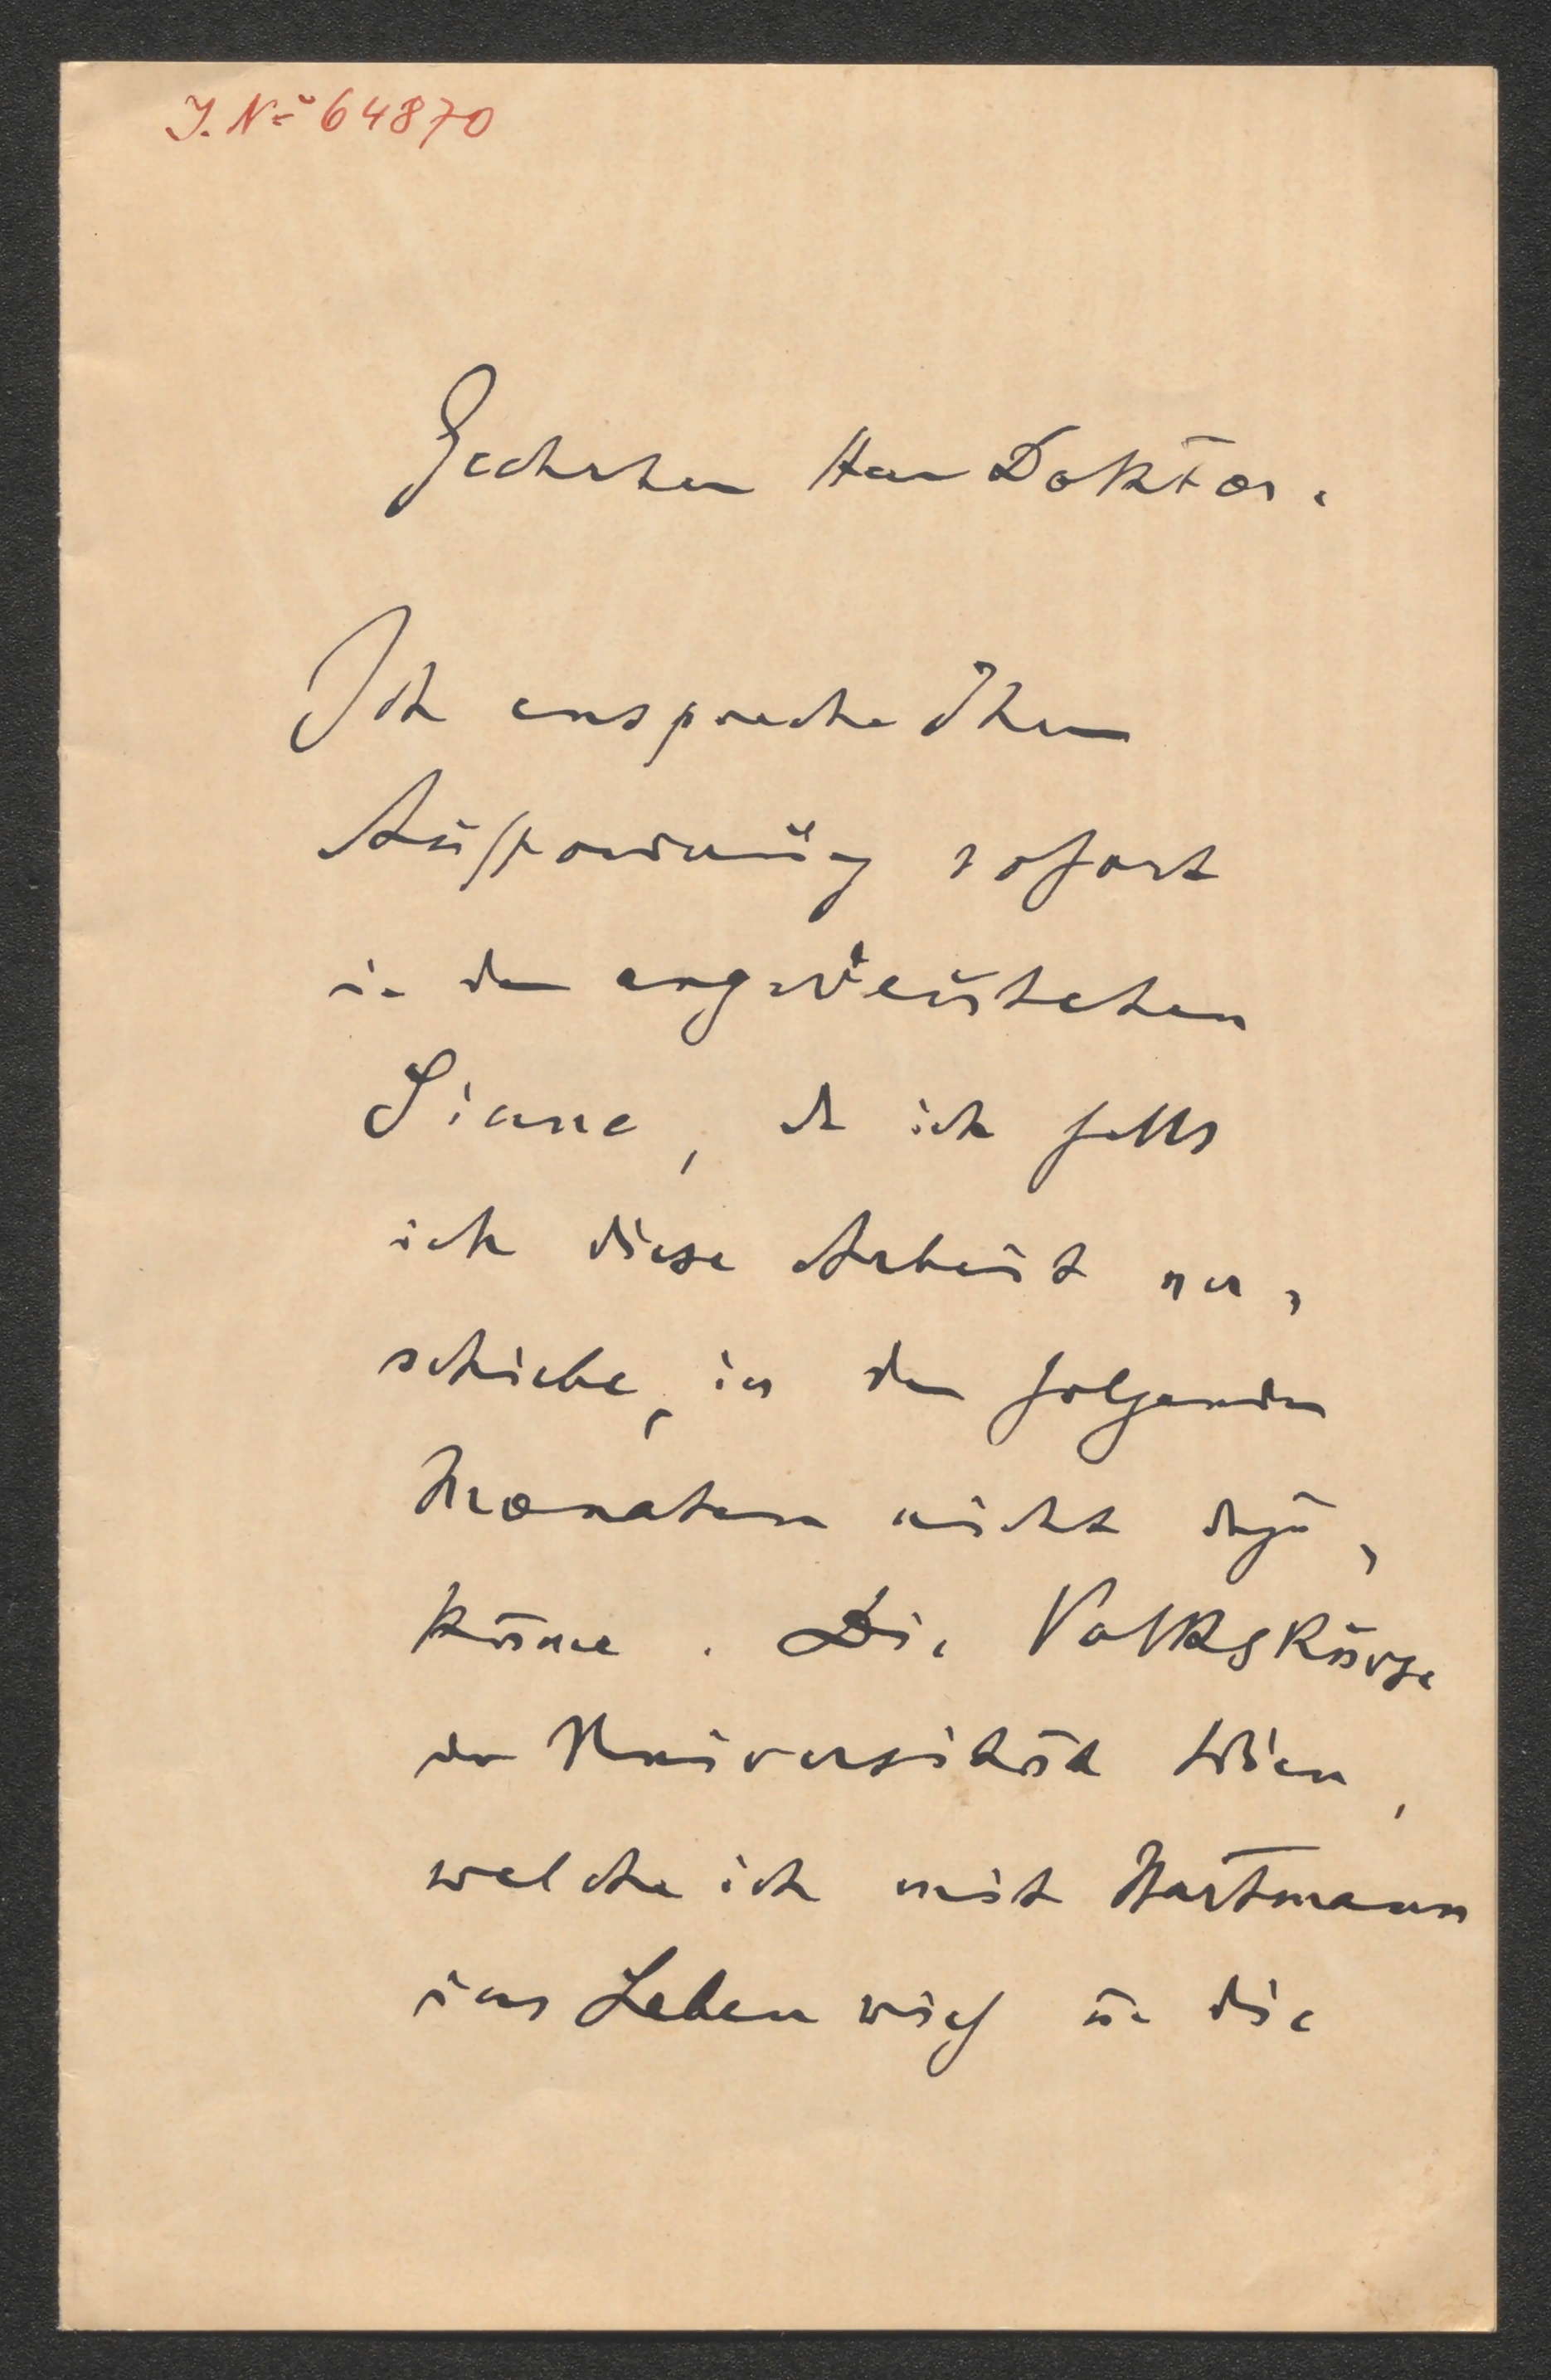 J. No 64870
Geehrter Herr Doktor.
Ich entspreche Ihrer
Aufforderung sofort
in dem angedeuteten
Sinne, da ich falls
ich diese Arbeit ver-
schiebe, in den folgenden
Monaten nicht dazu
käme. Die Volkskurse
der Universität Wien,
welche ich mit Hartmann
ins Leben rief u. die